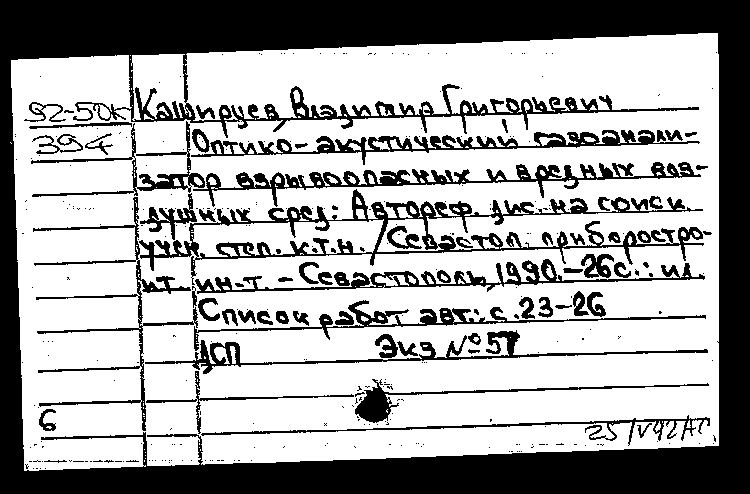 92-50к Каширцев, Владимир Григорьевич
394 Оптико-акустический газоанали-
затор взрывоопасных и вредных воз-
душных сред: Автореф. дис. на соиск.
учен. степ. к.т.н. / Севастоп. приборостро-
ит. ин-т. - Севастополь, 1990. - 26 с.: ил.
Список работ авт.: с. 23-26
ДСП Экз №57
6
25/V92